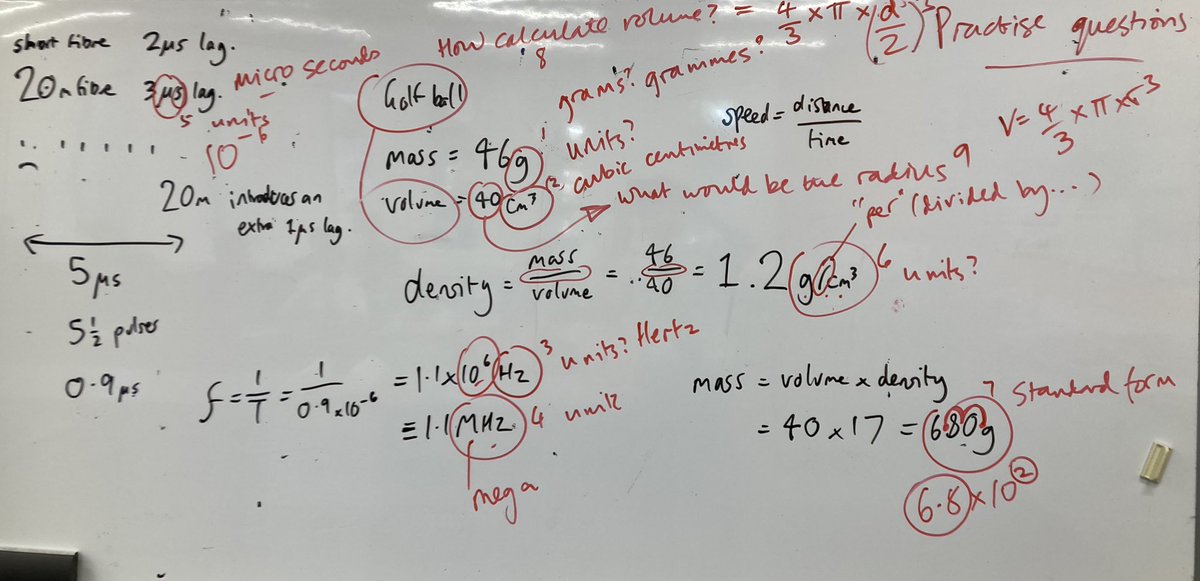 short fibre 2μs lag.
20m fibre 3μs lag. micro seconds
5 units
10⁻⁶
20m introduces an
extra 1μs lag.
5μs
5½ pulses
0.9μs
How calculate volume? = 4/3 × π × (d/2)³
8
Practise questions
V = 4/3 × π × r³
Golf ball
grams? grammes?
mass = 46g 1 units?
volume = 40 cm³ 2 cubic centimetres
speed = distance / time
what would be the radius 9
"per" (divided by...)
density = mass / volume = 46 / 40 = 1.2 g/cm³ 6 units?
f = 1/T = 1 / 0.9 × 10⁻⁶ = 1.1 × 10⁶ Hz 3 units? Hertz
≡ 1.1 MHz 4 units
mega
mass = volume × density
= 40 × 17 = 680g 7 Standard form
6.8 × 10²